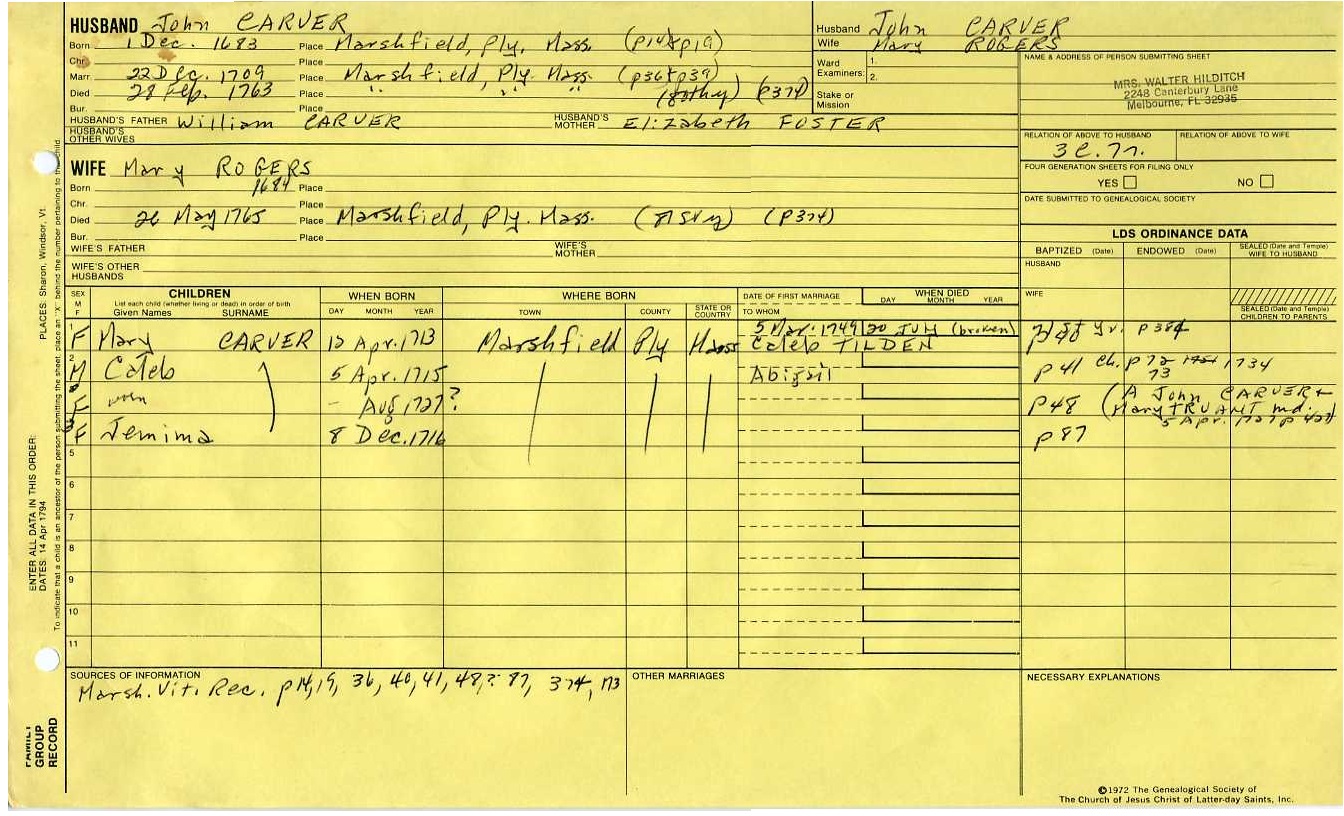 HUSBAND John CARVER
Born 1 Dec. 1683 Place Marshfield, Ply, Mass. (p14&p19)
Chr. Place
Marr. 22 Dec. 1709 Place Marshfield, Ply. Mass (p36&p39)
Died 28 Feb. 1763 Place " " " (80thy) (p374)
Bur. Place
HUSBAND'S FATHER William CARVER HUSBAND'S MOTHER Elizabeth FOSTER
HUSBAND'S OTHER WIVES
Husband John CARVER
Wife Mary ROGERS
Ward 1.
Examiners: 2.
Stake or Mission
NAME & ADDRESS OF PERSON SUBMITTING SHEET
MRS. WALTER HILDITCH
2248 Canterbury Lane
Melbourne, FL 32935
RELATION OF ABOVE TO HUSBAND RELATION OF ABOVE TO WIFE
FOUR GENERATION SHEETS FOR FILING ONLY
YES NO
DATE SUBMITTED TO GENEALOGICAL SOCIETY
WIFE Mary ROGERS
Born 1684 Place
Chr. Place
Died 26 May 1765 Place Marshfield, Ply. Mass. (p374)
Bur. Place
WIFE'S FATHER WIFE'S MOTHER
WIFE'S OTHER HUSBANDS
LDS ORDINANCE DATA
BAPTIZED (Date) ENDOWED (Date) SEALED (Date and Temple) WIFE TO HUSBAND
HUSBAND
WIFE
SEALED (Date and Temple) CHILDREN TO PARENTS
SEX M F CHILDREN WHEN BORN WHERE BORN DATE OF FIRST MARRIAGE WHEN DIED
List each child (whether living or dead) in order of birth
Given Names SURNAME DAY MONTH YEAR TOWN COUNTY STATE OR COUNTRY TO WHOM DAY MONTH YEAR
1 F Mary CARVER 12 Apr. 1713 Marshfield Ply Mass 5 Mar. 1749 20 July (broken) p 384
Caleb TILDEN
2 M Caleb 5 Apr. 1715 Abigail p 41 ch. p 72 1734
73
F - Aug 1727? p48 (A John CARVER +
Mary TRUANT md.
5 Apr. 1727
F Jemima 8 Dec. 1716 p 87
5
6
7
8
9
10
11
SOURCES OF INFORMATION
Marsh. Vit. Rec. p14, 19, 36, 40, 41, 48,? 87, 374, 173
OTHER MARRIAGES
NECESSARY EXPLANATIONS
ENTER ALL DATA IN THIS ORDER:
DATES: 14 Apr 1794 PLACES: Sharon, Windsor, Vt.
To indicate that a child is an ancestor of the person submitting the sheet, place an "X" behind the number pertaining to the child.
FAMILY GROUP RECORD
©1972 The Genealogical Society of
The Church of Jesus Christ of Latter-day Saints, Inc.